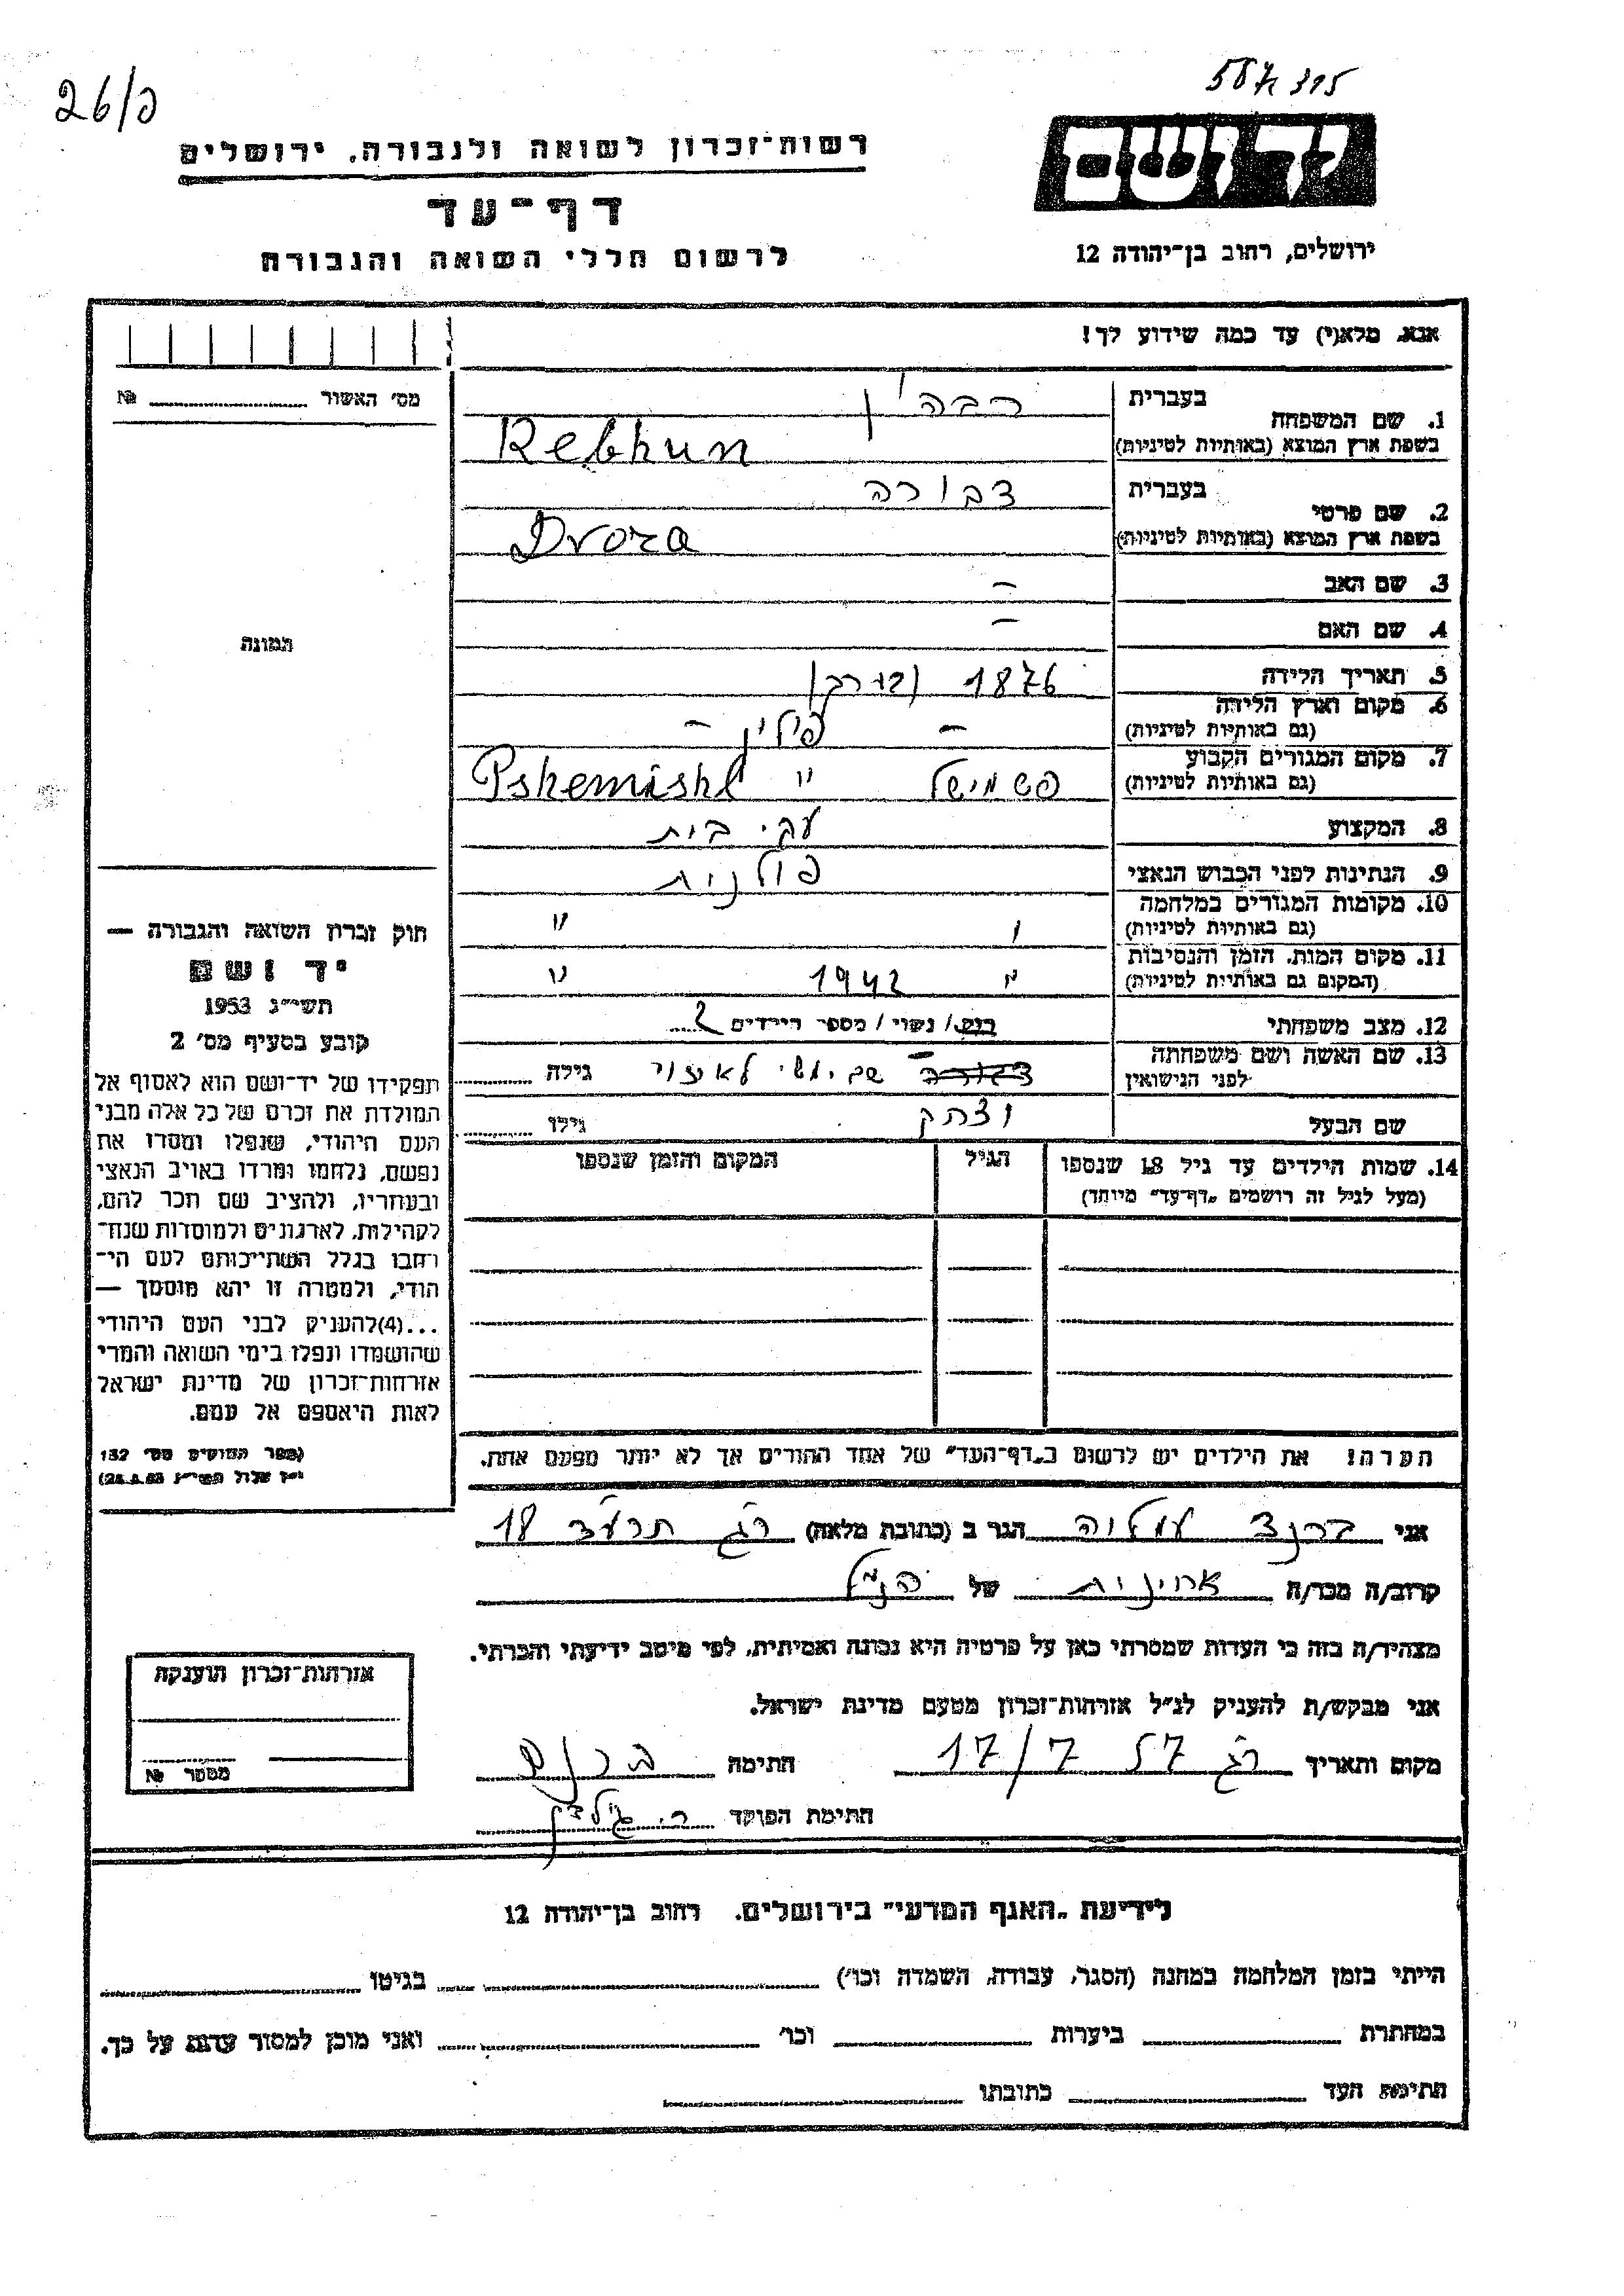 26/פ
587 315
יד ושם
רשות־זכרון לשואה ולגבורה, ירושלים
דף־עד
לרשום חללי השואה והגבורה
ירושלים, רחוב בן־יהודה 12
אנא, מלא(י) עד כמה שידוע לך!
מס׳ האשור № 
תמונה
1. שם המשפחה
בעברית
בשפת ארץ המוצא (באותיות לטיניות)
Rebhun
2. שם פרטי
בעברית דבורה
בשפת ארץ המוצא (באותיות לטיניות)
Dvora
3. שם האב –
4. שם האם –
5. תאריך הלידה 1876
6. מקום וארץ הלידה
(גם באותיות לטיניות) – פולין –
7. מקום המגורים הקבוע
(גם באותיות לטיניות) פשמישל " Pshemishl
8. המקצוע עק. בית
9. הנתינות לפני הכבוש הנאצי פולנית
10. מקומות המגורים במלחמה
(גם באותיות לטיניות) " "
11. מקום המות, הזמן והנסיבות
(המקום גם באותיות לטיניות) " 1942 "
12. מצב משפחתי רווק / נשוי / מספר הילדים 2
13. שם האשה ושם משפחתה
לפני הנישואין
גילה
שם הבעל יצחק גילו
14. שמות הילדים עד גיל 18 שנספו
(מעל לגיל זה רושמים „דף־עד” מיוחד)
הגיל
המקום והזמן שנספו
הערה! את הילדים יש לרשום ב„דף־העד” של אחד ההורים אך לא יותר מפעם אחת.
חוק זכרון השואה והגבורה —
יד ושם
תשי״ג 1953
קובע בסעיף מס׳ 2
תפקידו של יד־ושם הוא לאסוף אל
המולדת את זכרם של כל אלה מבני
העם היהודי, שנפלו ומסרו את
נפשם, נלחמו ומרדו באויב הנאצי
ובעוזריו, ולהציב שם וזכר להם,
לקהילות, לארגונים ולמוסדות שנח־
רבו בגלל השתייכותם לעם הי־
הודי, ולמטרה זו יהא מוסמך —
...(4)להעניק לבני העם היהודי
שהושמדו ונפלו בימי השואה והמרי
אזרחות־זכרון של מדינת ישראל
לאות היאספם אל עמם.
(ספר החוקים מס׳ 132
י״ז אלול תשי״ג 28.8.53)
אני ברנד עמליה הגר ב (כתובת מלאה) רג תרע״ד 18
קרוב/ה מכר/ה של הנ״ל
מצהיר/ה בזה כי העדות שמסרתי כאן על פרטיה היא נכונה ואמיתית, לפי מיטב ידיעתי והכרתי.
אני מבקש/ת להעניק לנ״ל אזרחות־זכרון מטעם מדינת ישראל.
מקום ותאריך רג 17/7 57 חתימה ברנד
חתימת הפוקד
אזרחות־זכרון הוענקה
מספר №
לידיעת „האגף המדעי” בירושלים, רחוב בן־יהודה 12
הייתי בזמן המלחמה במחנה (הסגר, עבודה, השמדה וכו׳) בגיטו
במחתרת ביערות וכו׳ ואני מוכן למסור עדות על כך.
חתימת העד כתובתו